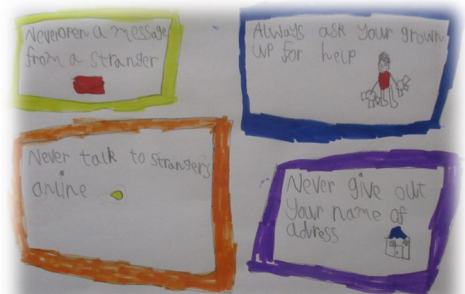 Never open a message
from a stranger
Always ask your grown
up for help
Never talk to strangers
online
Never give out
your name of
adress